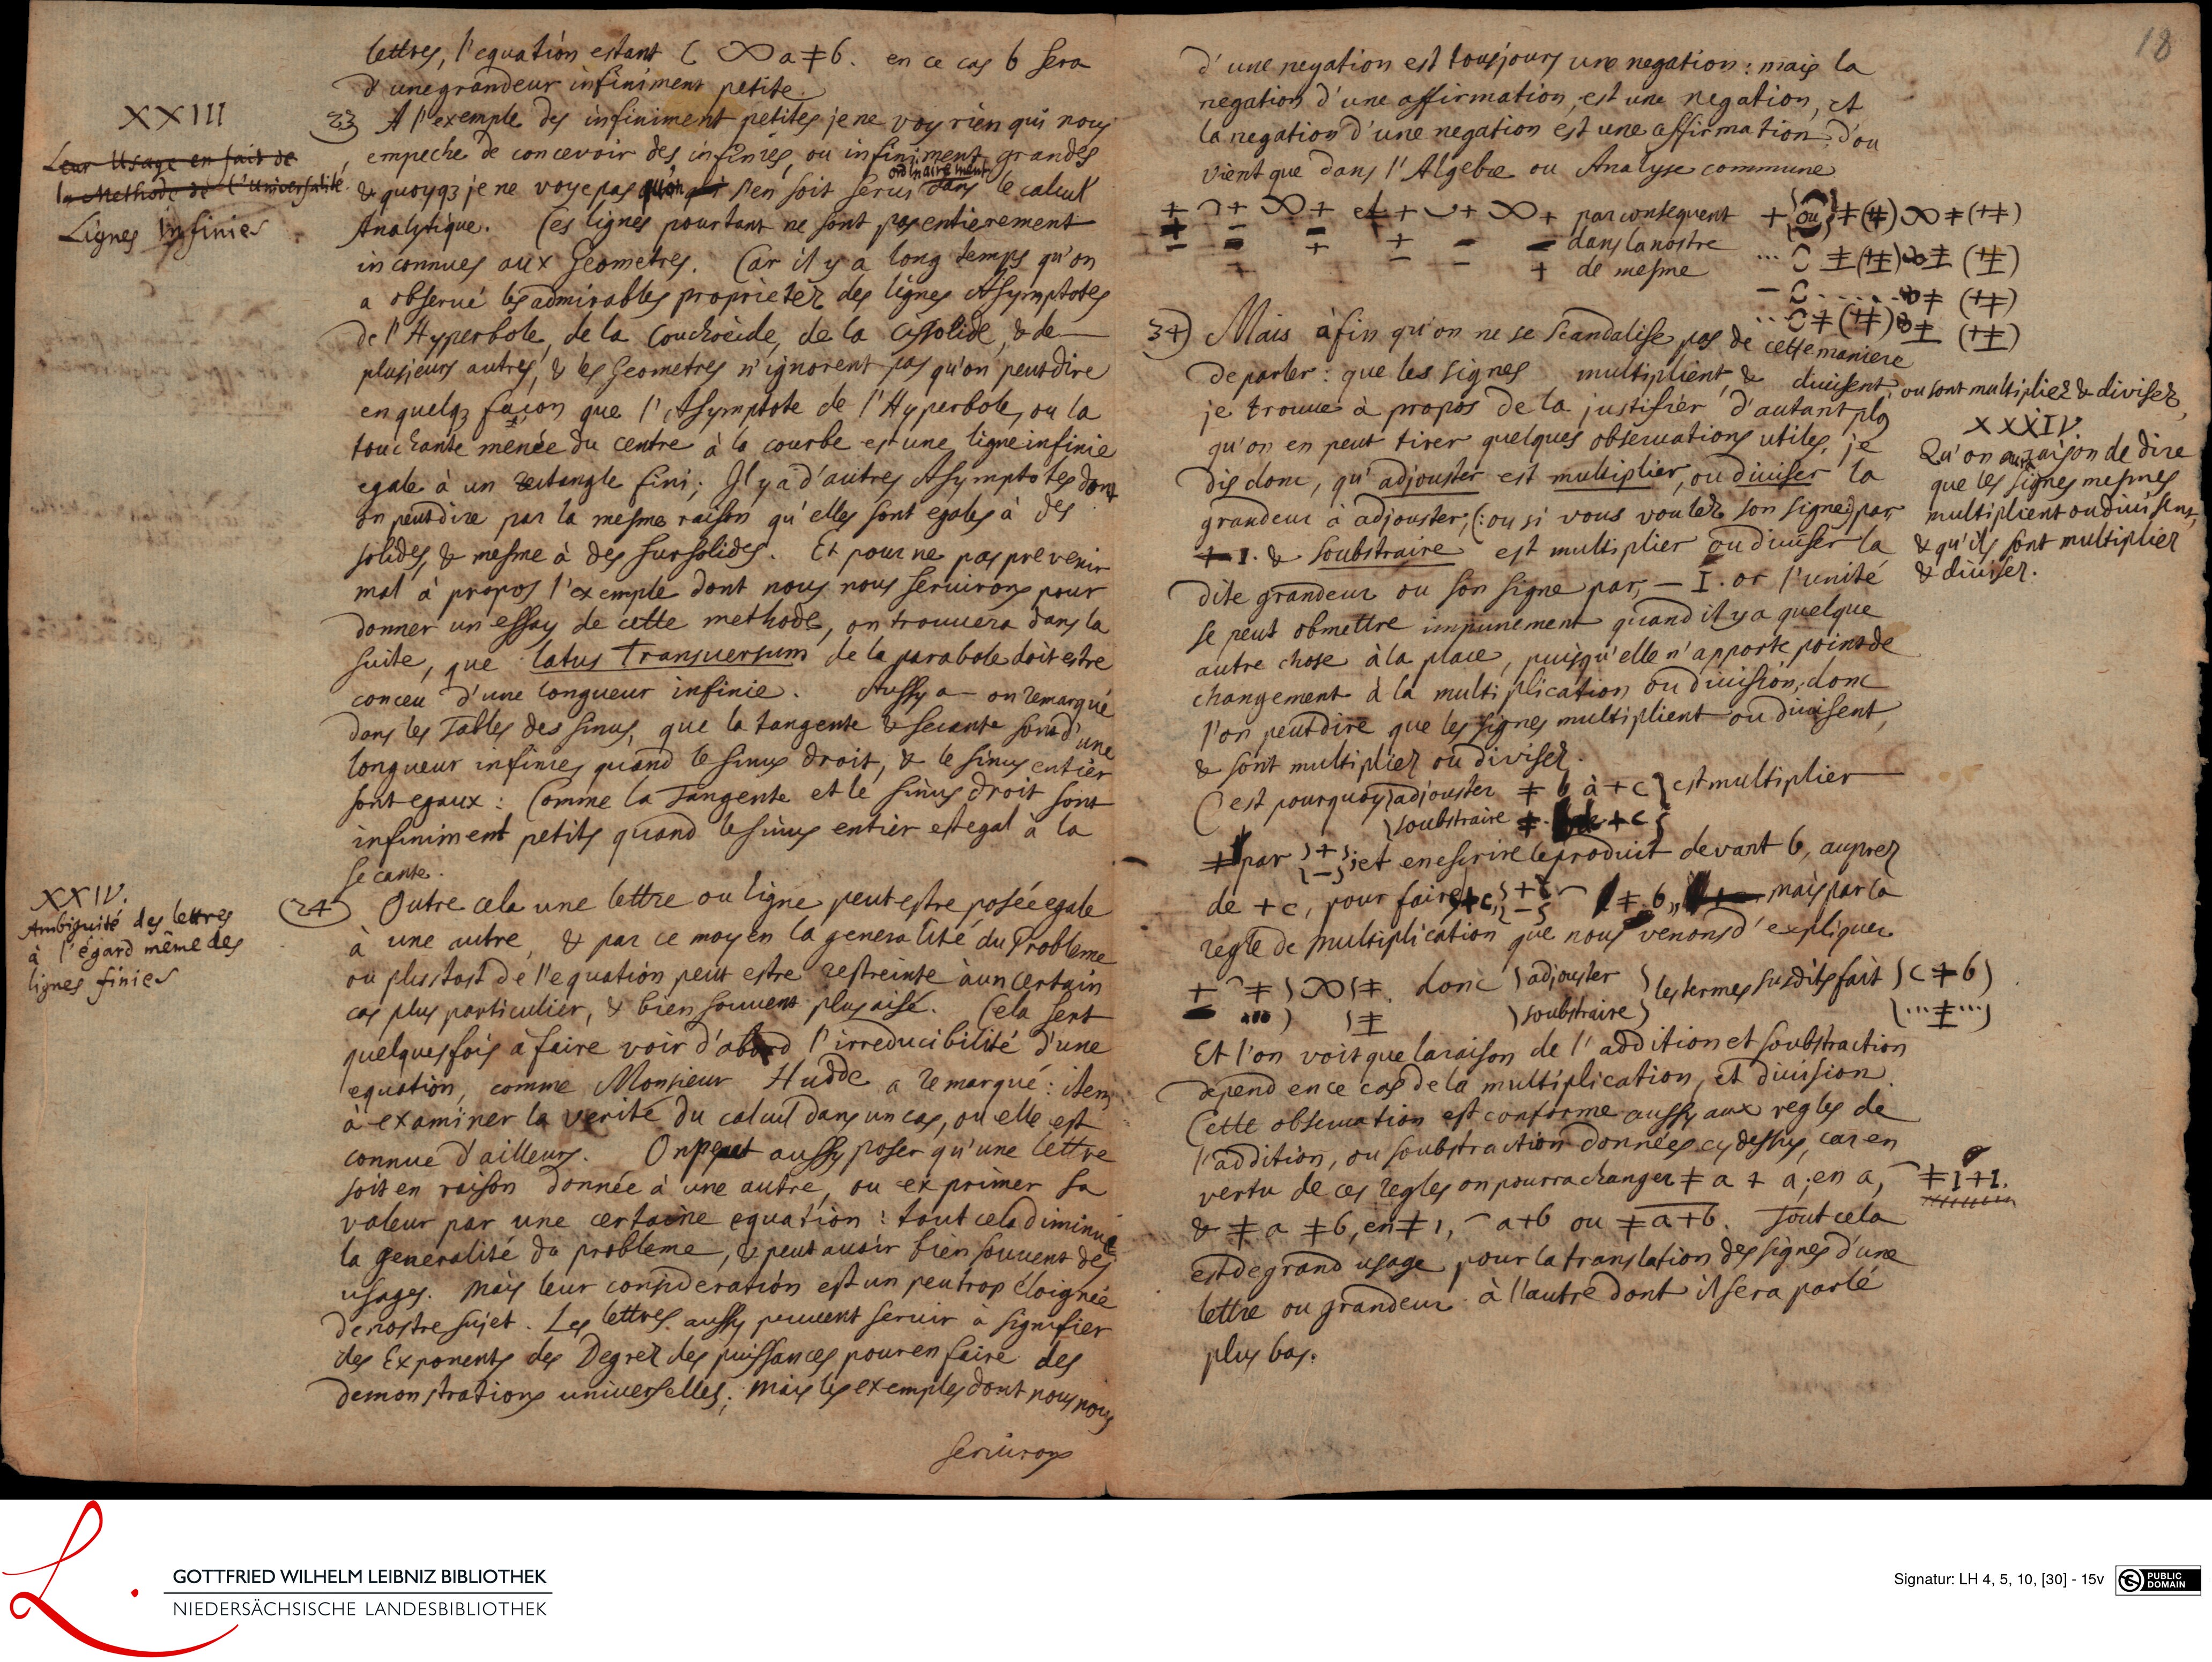 lettres, l'equation estant c ∞ a ⧧ b. en ce cas b sera
d'une grandeur infiniment petite.
XXIII
23) A l'exemple des infiniment petites je ne voy rien qui nous
Leur Usage en fait de
la Methode de l'universalité.
Lignes infinies
empeche de concevoir des infinies, ou infiniment grandes
& quoyqz je ne voye pas qu'on s'en soit servi ordinairement dans le calcul
Analytique. Ces lignes pourtant ne sont pas entierement
inconnues aux Geometres. Car il y a long temps qu'on
a observé les admirables proprietez des lignes Asymptotes
de l'Hyperbole, de la Conchoeide, de la Cissoide, & de
plusieurs autres, & les Geometres n'ignorent pas qu'on peut dire
en quelqz façon que l'Asymptote de l'Hyperbole, ou la
touchante menée du centre à la courbe est une ligne infinie
egale à un rectangle fini; Il y a d'autres Asymptotes dont
on peut dire par la mesme raison qu'elles sont egales à des
solides, & mesme à des sursolides. Et pour ne pas prevenir
mal à propos l'exemple dont nous nous servirons pour
donner un essay de cette methode, on trouvera dans la
suite, que latus Transversum de la parabole doit estre
conceu d'une longueur infinie. Aussy a-on remarqué
dans les Tables des sinus, que la tangente & secante sont d'une
longueur infinies quand le sinus droit, & le sinus entier
sont egaux: Comme la Tangente et le sinus droit sont
infiniment petits quand le sinus entier est egal à la
secante.
XXIV.
Ambiguité des lettres
à l'égard même des
lignes finies
24) Outre cela une lettre ou ligne peut estre posée egale
à une autre, & par ce moyen la generalité du Probleme
ou plustost de l'equation peut estre restreinte à un certain
cas plus particulier, & bien souvent plus aisé. Cela sert
quelquesfois à faire voir d'abord l'irreducibilité d'une
equation, comme Monsieur Hudde a remarqué: item
à examiner la verité du calcul dans un cas, ou elle est
connue d'ailleurs. On peut aussy poser qu'une lettre
soit en raison donnée à une autre, ou exprimer sa
valeur par une certaine equation: tout cela diminue
la generalité du probleme, & peut avoir bien souvent des
usages. Mais leur consideration est un peu trop éloignée
de nostre sujet. Les lettres aussy peuvent servir à signifier
des Exponents des Degrez des puissances pour en faire des
demonstrations universelles; Mais les exemples dont nous nous
servirons
18
d'une negation est tousjours une negation: mais la
negation d'une affirmation, est une negation, et
la negation d'une negation est une affirmation: d'ou
vient que dans l'Algebre ou Analyse commune
par consequent
dans la nostre
de mesme
34) Mais àfin qu'on ne se scandalise pas de cette maniere
de parler: que les signes multiplient, & divisent, ou sont multipliez & divisez,
je trouve à propos de la justifier d'autant plus
qu'on en peut tirer quelques observations utiles, je
dis donc, qu'adjouster est multiplier, ou diviser la
grandeur à adjouster, (: ou si vous voulez son signe:) par,
+ 1. & soubstraire est multiplier ou diviser la
dite grandeur ou son signe par, − 1. or l'unité
se peut obmettre impunement quand il y a quelque
autre chose à la place, puisqu'elle n'apporte point de
changement à la multiplication ou division, donc
l'on peut dire que les signes multiplient ou divisent,
& sont multipliez ou divisez.
XXXIV.
Qu'on a raison de dire
que les signes mesmes
multiplient ou divisent,
& qu'ils sont multipliez
& divisez.
C'est pourquoy adjouster ⧧ b à + c est multiplier
soubstraire
⧧ par + − et en escrire le produit devant b, auprez
de + c, pour faire mais par la
regle de multiplication que nous venons d'expliquer
donc adjouster les termes susdits fait (c ⧧ b)
soubstraire
Et l'on voit que la raison de l'addition et soubstraction
depend en ce cas de la multiplication, et division.
Cette observation est conforme aussy aux regles de
l'addition, ou soubstraction données cy dessus, car en
vertu de ces regles on pourra changer ⧧ a + a, en a, ⌢ ⧧ 1 + 1.
& ⧧ a ⧧ b, en ⧧ 1, ⌢ a + b ou ⧧ a + b. Tout cela
est de grand usage pour la translation des signes d'une
lettre ou grandeur à l'autre dont il sera parlé
plus bas.
GOTTFRIED WILHELM LEIBNIZ BIBLIOTHEK
NIEDERSÄCHSISCHE LANDESBIBLIOTHEK
Signatur: LH 4, 5, 10, [30] - 15v
PUBLIC DOMAIN